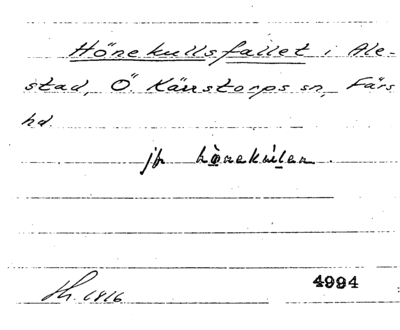 Hönekullsfallet i Ale-
stad, Ö. Kärrstorps sn, Färs
hd.
jfr hònekùlen.
Sh. 1816
4994